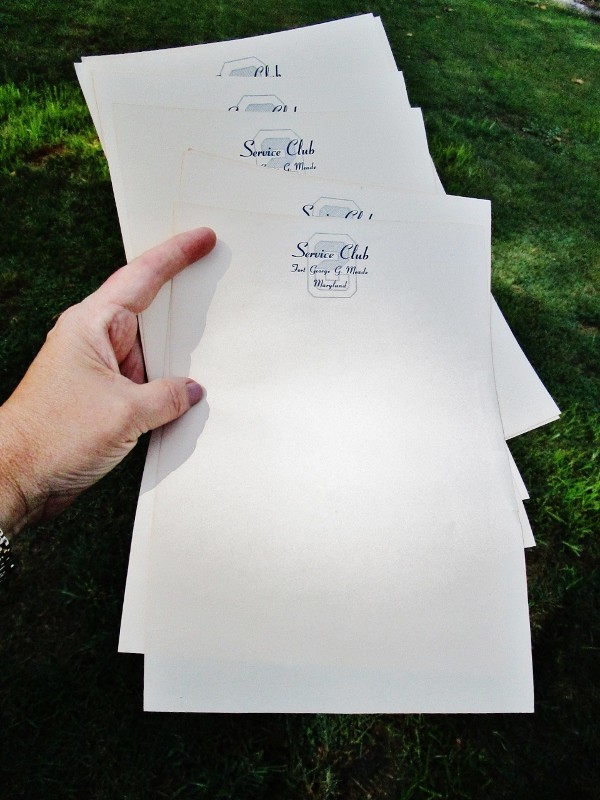 Club
Service Club
G. Meade
Service Club
Fort George G. Meade
Maryland